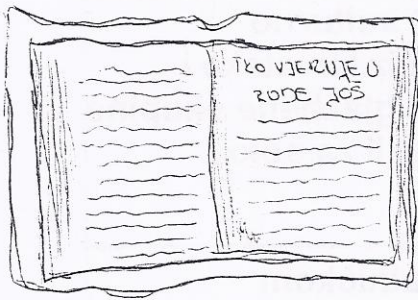 TKO VJERUJE U
RODE JOŠ